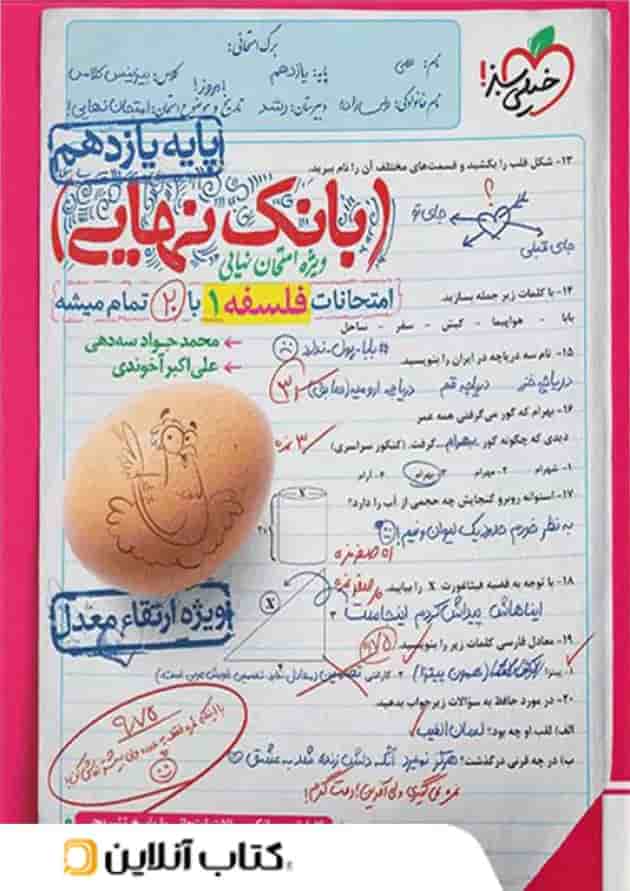 برگ امتحانی:
نام:
پایه: یازدهم
کلاس: بیزینس کلاس
نام خانوادگی:
دبیرستان: رشد
تاریخ و موضوع امتحان: امتحان نهایی!
امروز!
خیلی سبز!
پایه یازدهم
(بانک نهایی)
ویژه امتحان نهایی
امتحانات فلسفه ۱ با ۲۰ تمام میشه
محمدجواد سه‌دهی
علی‌اکبر آخوندی
۱۳- شکل قلب را بکشید و قسمت‌های مختلف آن را نام ببرید.
؟
جای تو
جای قبلی
۱۴- با کلمات زیر جمله بسازید.
بابا - هواپیما - کیش - سفر - ساحل
#بابا-پول-ندارد
۱۵- نام سه دریاچه در ایران را بنویسید.
دریاچه خزر دریاچه قم دریاچه ارومیه
۱۶- بهرام که گور می‌گرفتی همه عمر
دیدی که چگونه گور بهرام گرفت. (کنکور سراسری)
۳ نمره
۱- شهرام ۲- مهرام ۳- بهرام ۴- آرام
۱۷- استوانه روبرو گنجایش چه حجمی از آب را دارد؟
X
به نظر خودم حدود یک لیوان و نیم!
۱۸- با توجه به قضیه فیثاغورث X را بیابید.
X
ایناهاش پیداش کردم اینجاست
ویژه ارتقاء معدل
۱۹- معادل فارسی کلمات زیر را بنویسید.
۱- پیتزا (همون پیتزا) ۲- کاراته
۲۰- در مورد حافظ به سؤالات زیر جواب بدهید.
الف) لقب او چه بود؟ لسان الغیب
ب) در چه قرنی درگذشت؟ هرگز نمیرد آنکه دلش زنده شد به عشق
۹/۷۵
نمره نمی‌گیری ولی آفرین! دمت گرم!
کتاب آنلاین